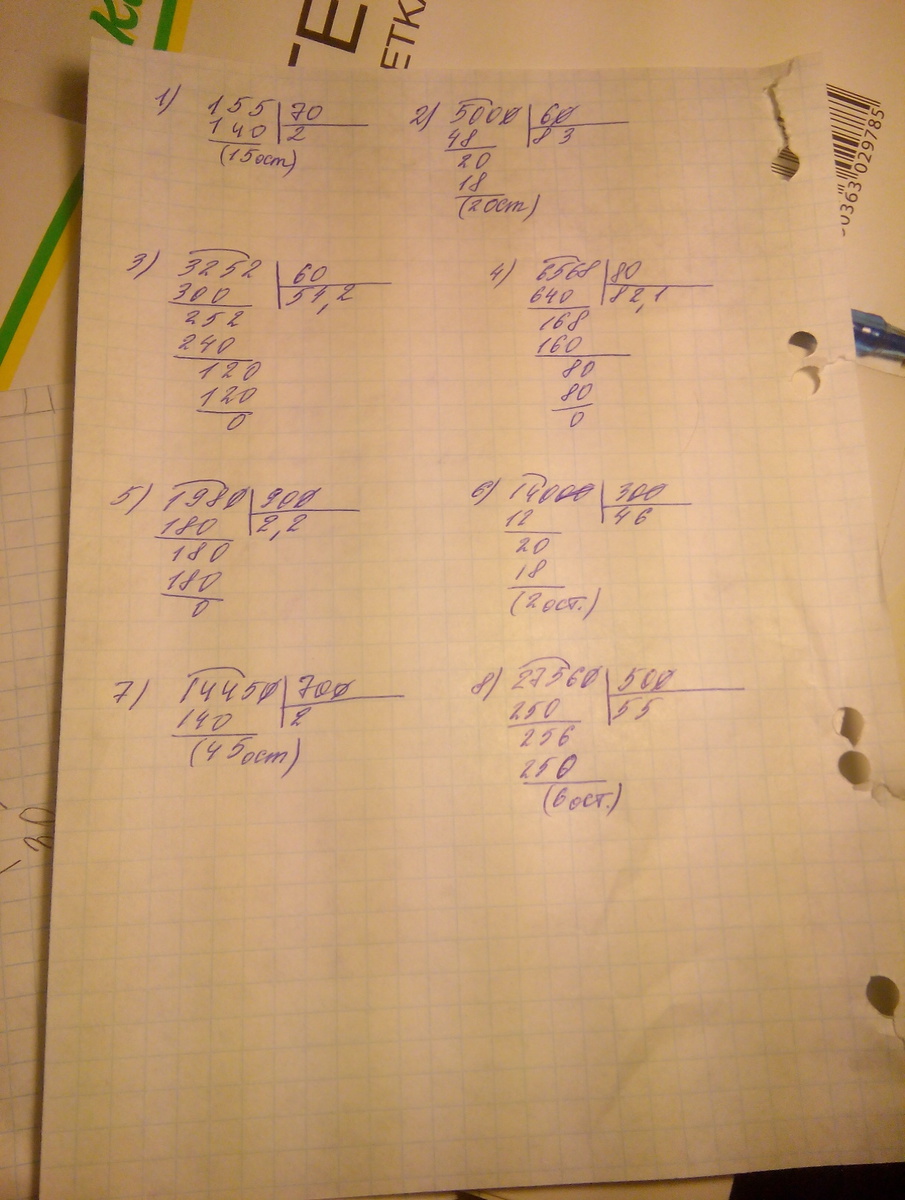 ЕТКА
0363 029785
1) 155 | 70
140 | 2
(15ост)
2) 5000 | 60
48 | 83
20
18
(20ст)
3) 3252 | 60
300 | 54,2
252
240
120
120
0
4) 6568 | 80
640 | 82,1
168
160
80
80
0
5) 1980 | 900
180 | 2,2
180
180
0
6) 14000 | 300
12 | 46
20
18
(2ост.)
7) 14450 | 700
140 | 2
(45ост)
8) 27560 | 500
250 | 55
256
250
(6ост.)
30